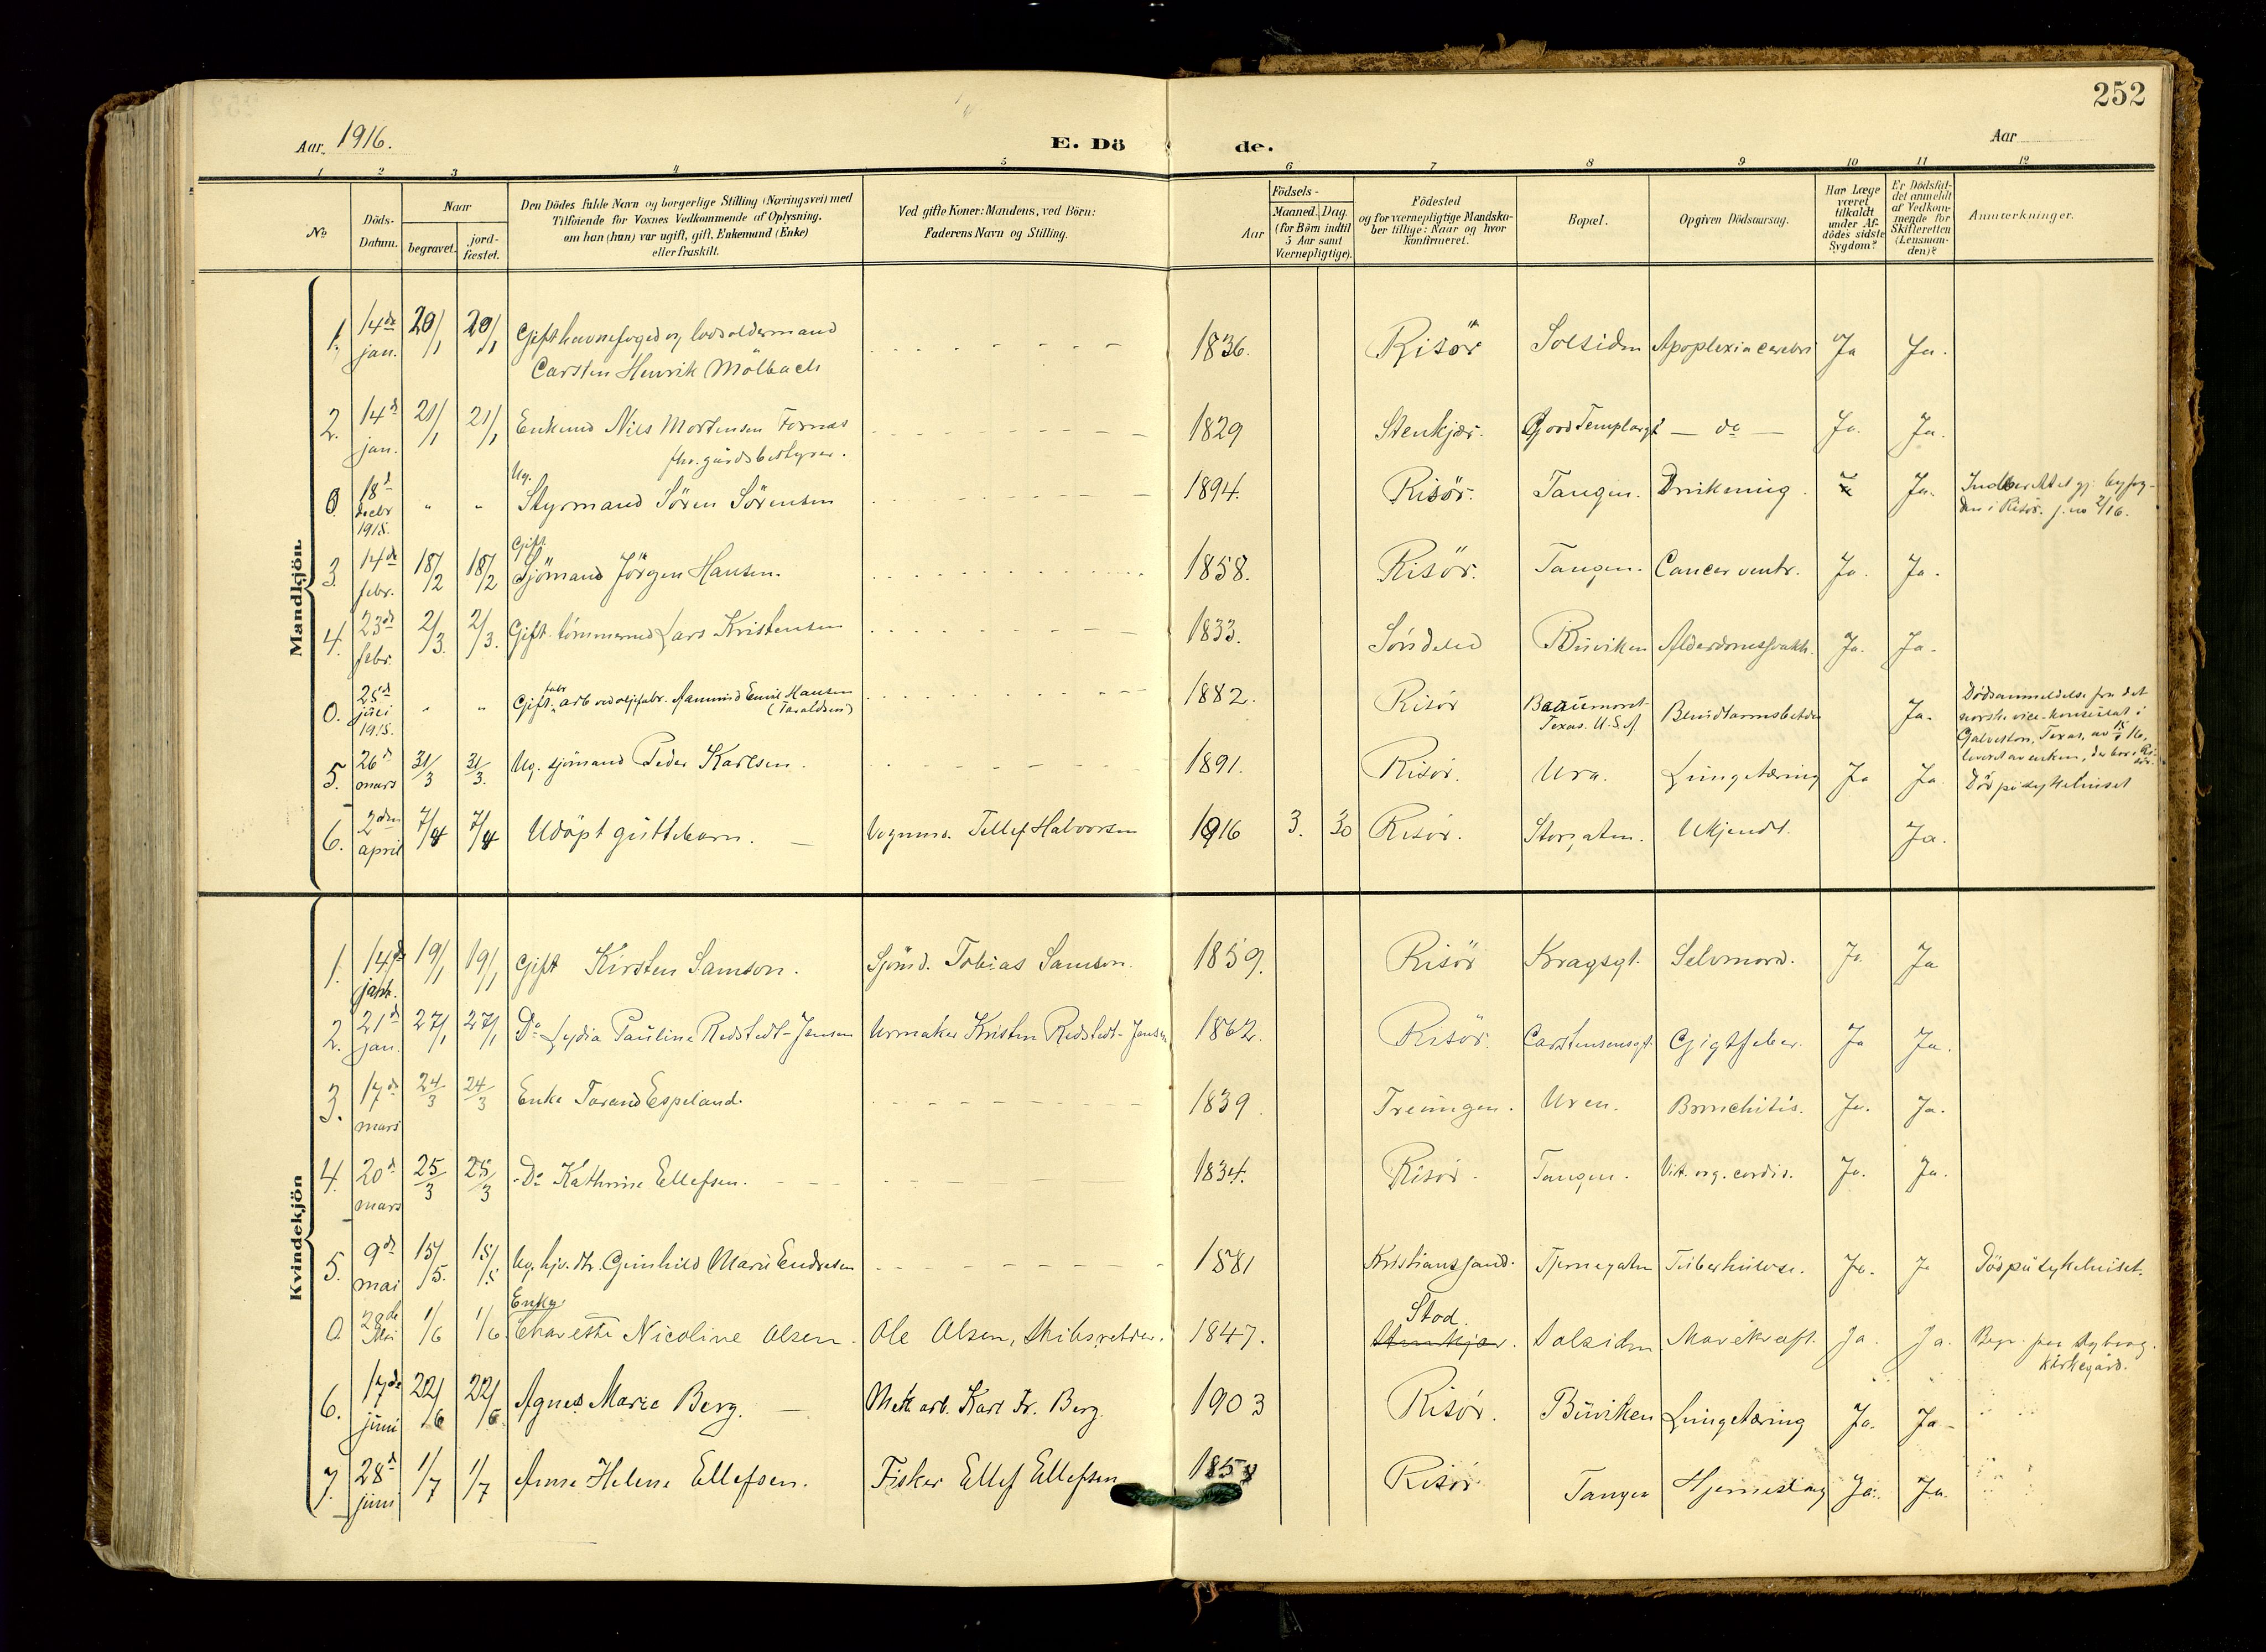 252
Aar. 1916.
E. Dö de.
Aar
1 2 3 4 5 6 7 8 9 10 11 12
No
Döds-Datum.
Naar
begravet.
jord-fæstet.
Den Dödes fulde Navn og borgerlige Stilling (Næringsvei) med
Tilföiende for Voxnes Vedkommende af Oplysning,
om han (hun) var ugift, gift, Enkemand (Enke)
eller fraskilt.
Ved gifte Koner: Mandens, ved Börn:
Faderens Navn og Stilling.
Födsels-
Aar
Maaned. Dag.
(for Börn indtil
5 Aar samt
Værnepligtige).
Födested
og for værnepligtige Mandska-
ber tillige: Naar og hvor
konfirmeret.
Bopæl.
Opgiven Dödsaarsag.
Har Læge
været
tilkaldt
under Af-
dödes sidste
Sygdom?
Er Dödsfal-
det anmeldt
af Vedkom-
mende for
Skifteretten
(Lensman-
den)?
Anmærkninger.
Mandkjön.
1. 14de jan. 20/1 20/1 Gift havnefoged og lodsoldermand
Carsten Henrik Mölbach 1836. Risör Solsiden Apoplexia cerebri Ja Ja.
2. 14d jan. 21/1 21/1 Enkemd Niels Mortensen Fornæs
fhv. gårdsbestyrer. 1829 Stenkjær. Good Templargt. — do — Ja. Ja.
0. 18d decbr 1915. " " Ug.
Styrmand Sören Sörensen 1894. Risör. Tangen. Drukning. Ja. Indberettet gj. byfog-
den i Risör. j. no 2/16.
3. 14de febr. 18/2 18/2 Gift
Sjömand Jörgen Hansen. 1858. Risör. Tangen. Cancer ventr. Ja. Ja.
4. 23de febr. 2/3. 2/3. Gift tömmermd Lars Kristensen 1833. Söndeled Buviken Alderdomssvakh. Ja. Ja.
0. 25d juli 1915. " " Gift arb ved oljefabr. Aanund Emil Hansen
(Taraldsen) 1882. Risör Beaumont
Texas. U.S.A. Blindtarmsbetdn Ja. Dödsanmeldelse fra det
norske vice-konsulat i
Galveston, Texas, av
leveret av enken, der bor i Ri-
sör.
5. 26d mars 31/3 31/3. Ug. sjömand Peder Karlsen. 1891. Risör. Ura. Lungetæring Ja Ja. Död på sykehuset
6. 2den april 7/4 7/4 Udöpt guttebarn. — Vognmd. Tellef Halvorsen 1916 3. 30 Risör. Storgaten. Ukjendt. Ja.
Kvindekjön
1. 14de jan. 19/1 19/1 Gift Kirsten Samson. Sjömd. Tobias Samson. 1859. Risör Kragsgt. Selvmord. Ja. Ja
2. 21d jan. 27/1 27/1 Do Lydia Pauline Redstedt-Jensen Urmaker Kristen Redstedt-Jensen 1862. Risör. Carstensensgt. Gigtfeber. Ja Ja.
3. 17de mars 24/3 24/3 Enke Tarand Espeland. 1839. Treungen. Uren. Bronchitis. Ja. Ja.
4. 20d mars 25/3 25/3 Do Kathrine Ellefsen. 1834. Risör. Tangen. Vit. org. cordis. Ja. Ja.
5. 9de mai 15/5. 15/5 Ug. hjv. st. Gunhild Marie Endresen 1881 Kristianssand. Tjernegaten Tuberkulose. Ja. Ja Död på sykehuset.
0. 28de Mai 1/6 1/6 Enke
Nicoline Olsen. Ole Olsen, Skibsreder. 1847. Stod.
Stenkjær. Solsiden Mavekræft. Ja. Ja. Begr. paa
kirkegård.
6. 17de juni 22/6 22/6. Agnes Marie Berg. — Mek. arb. Karl Fr. Berg. 1903 Risör. Buviken Lungetæring Ja. Ja.
7. 28d juni 1/7 1/7 Anne Helene Ellefsen. Fisker Ellef Ellefsen Risör Tangen Hjerneslag Ja. Ja.